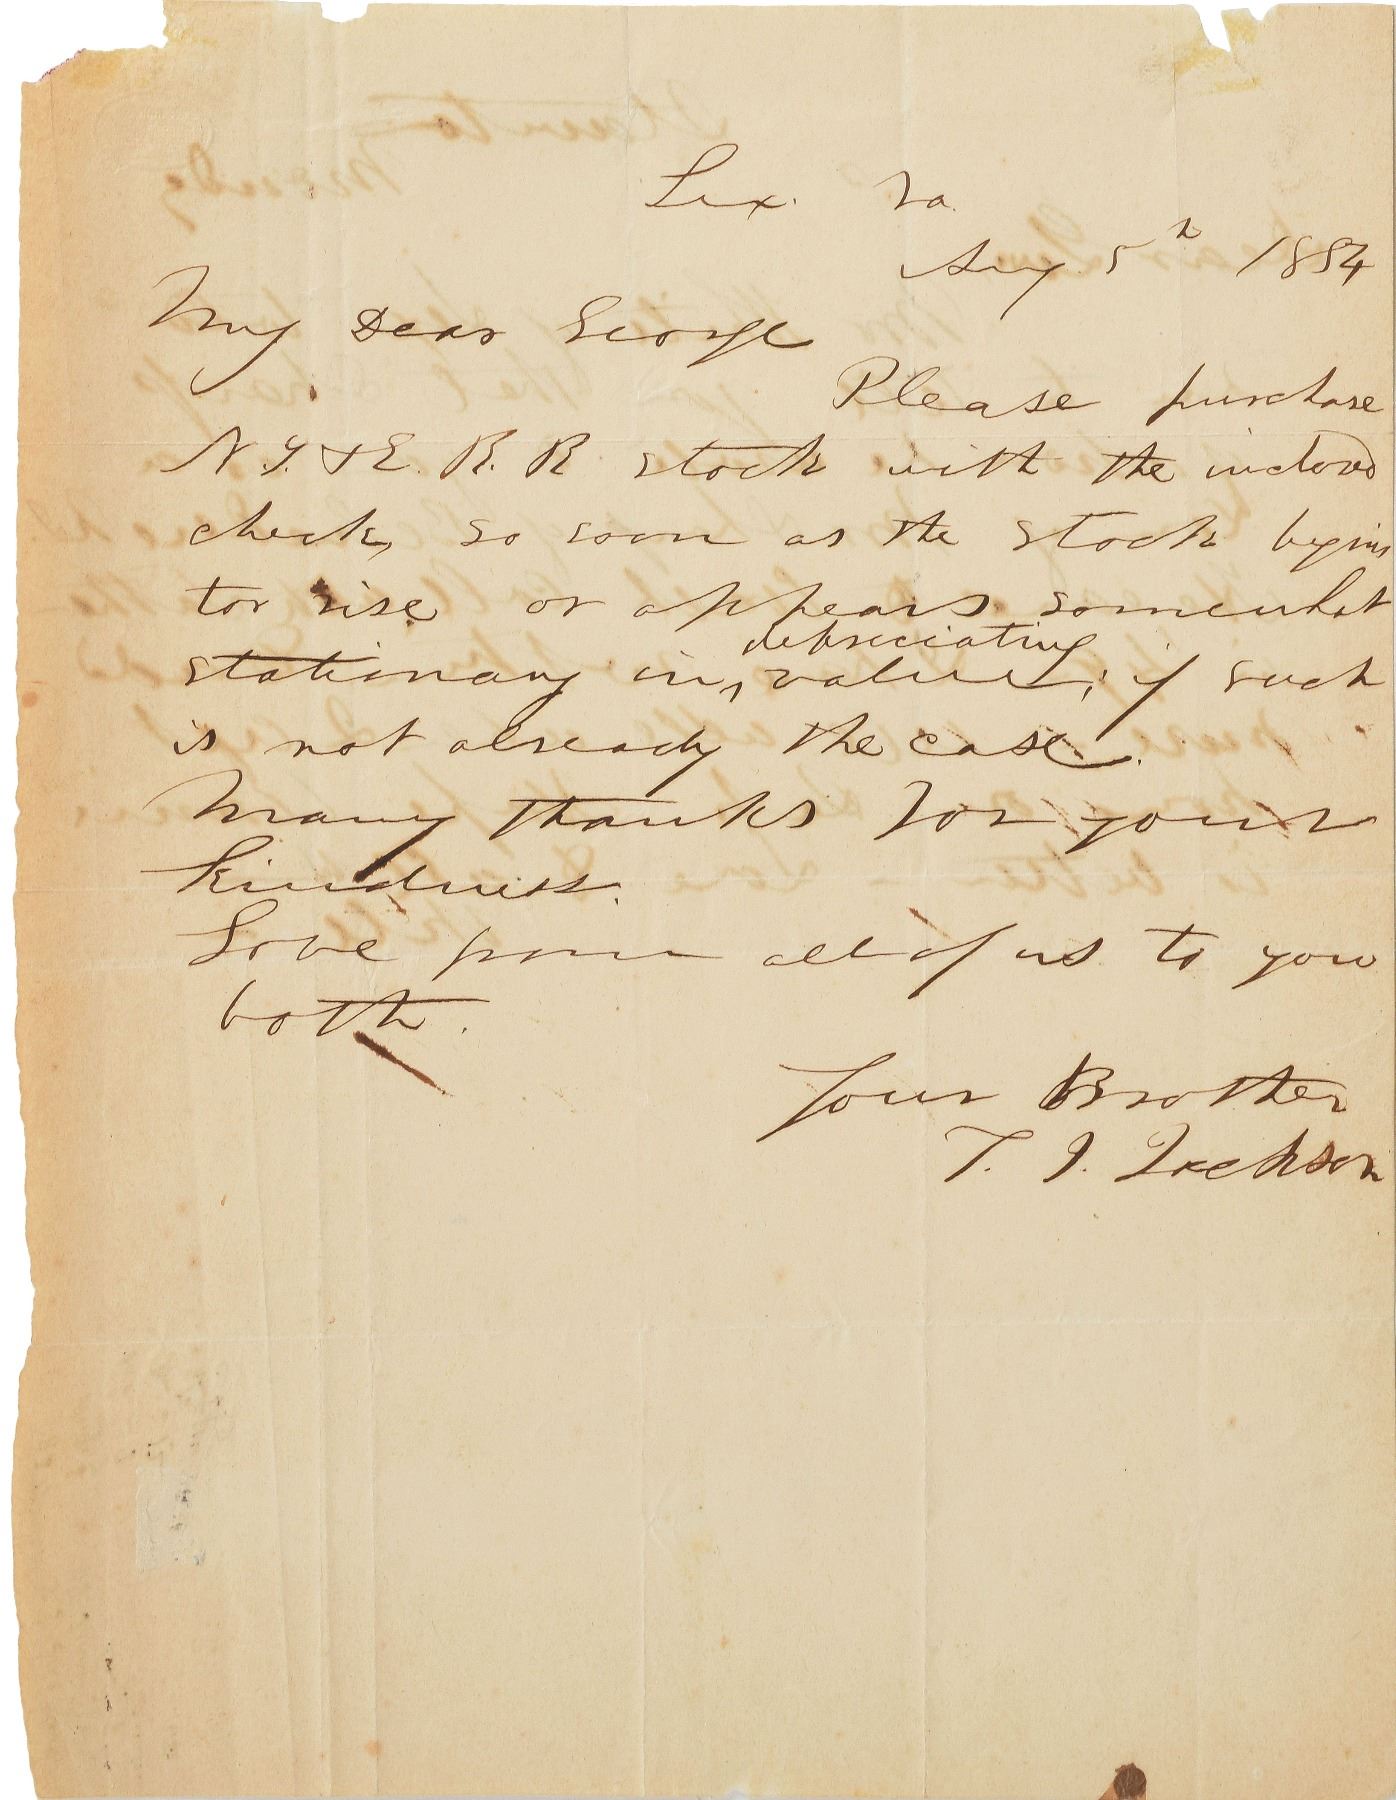 Lex. Va.
Aug 5th 1854
My Dear George
Please purchase
N.Y. & E. R. R stock with the inclosed
check, so soon as the stock begins
to rise or appears somewhat
depreciating
stationary in, value; if such
is not already the case.
Many thanks for your
kindness.
Love from all of us to you
both.
Your Brother
T. J. Jackson